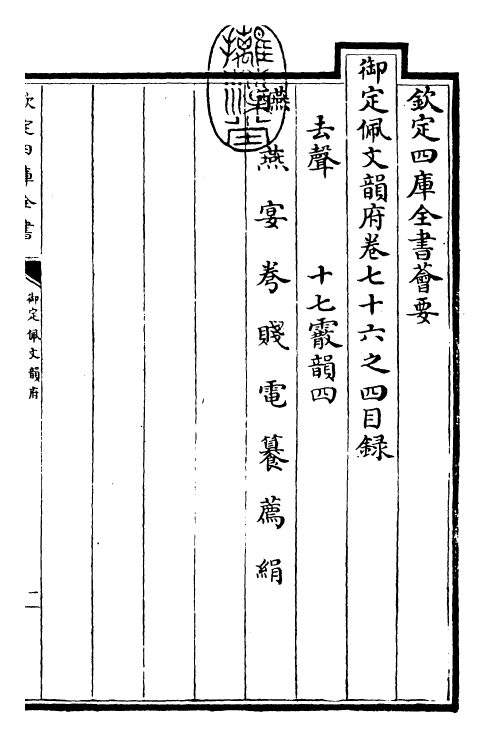 欽定四庫全書薈要
御定佩文韻府卷七十六之四目録
去聲　十七霰韻四
醼燕宴眷賤電纂薦絹
欽定四庫全書
御定佩文韻府
二